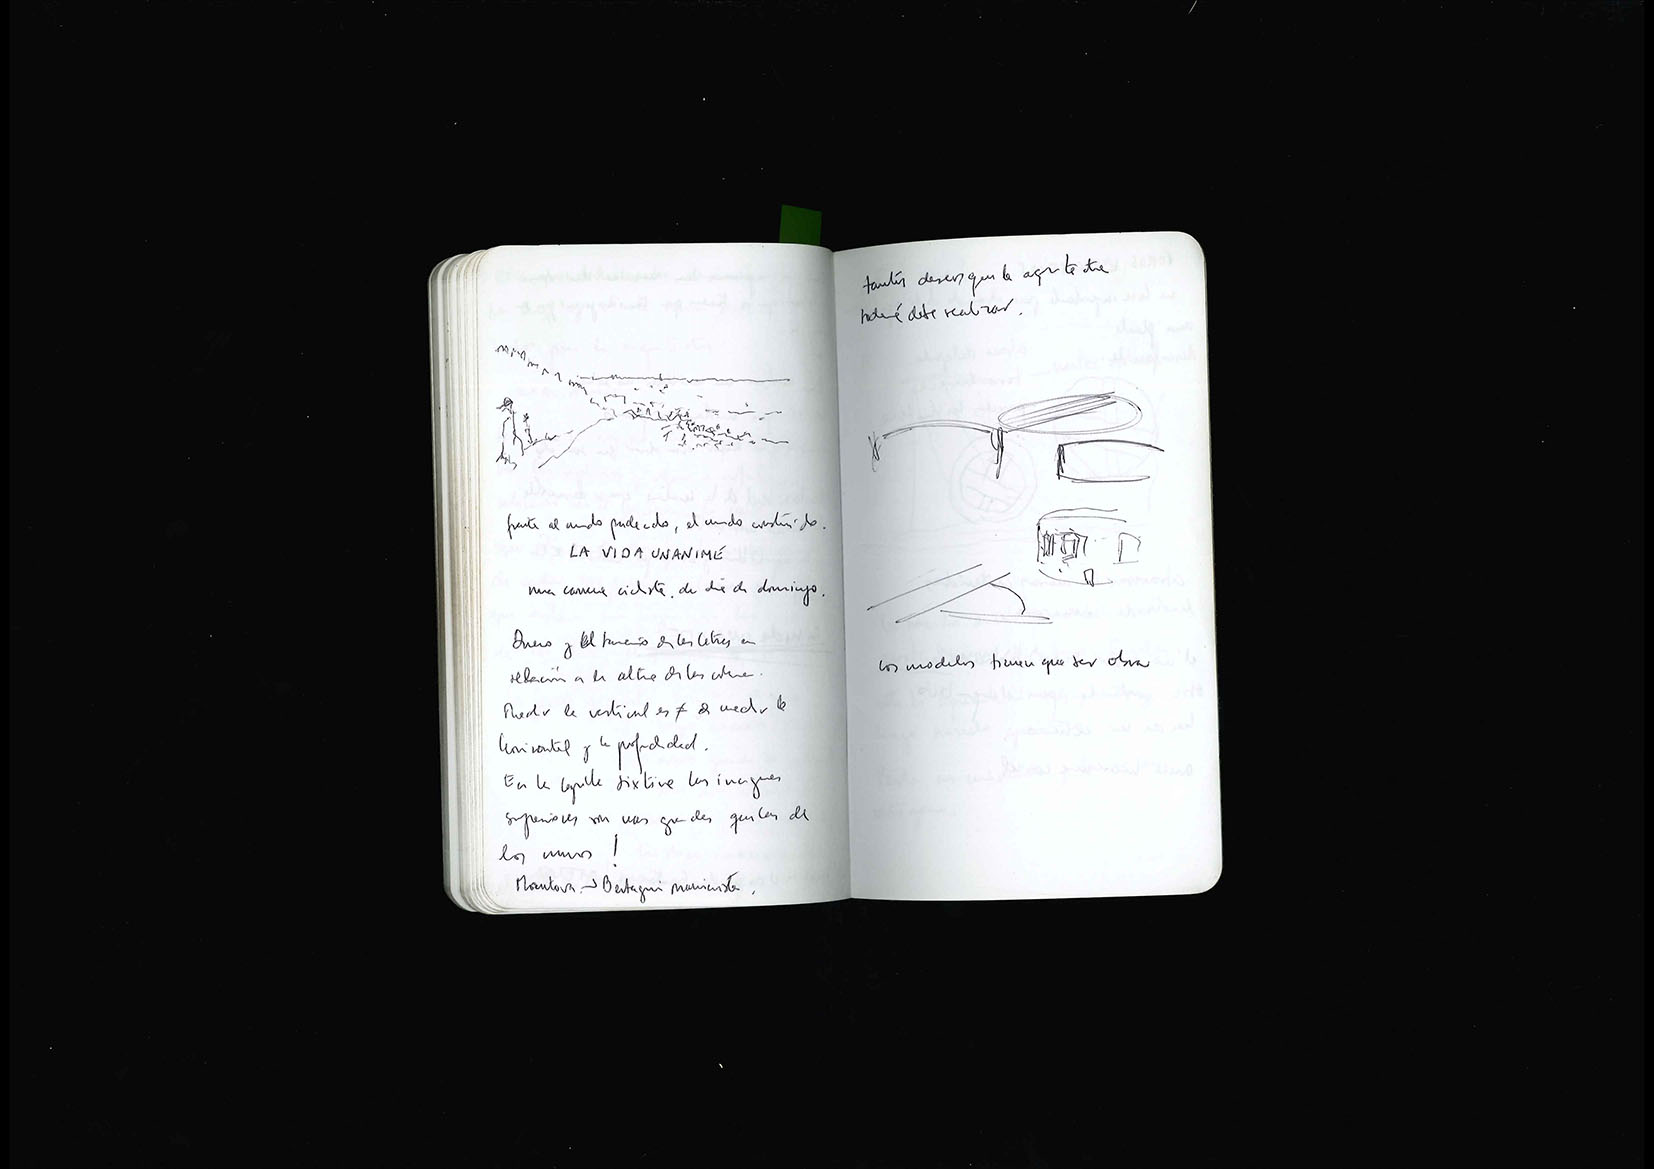 frente al mundo        , el mundo construido.
LA VIDA UNANIME
una carrera ciclista. de día de domingo.
y El tamaño de las letras en
relación a la altura de las
Medir la vertical es ≠ de medir la
horizontal y la profundidad.
En la capilla sixtina las imagenes
superiores son mas grandes que las de
los muros !
Mantova →        manierista.
tantos deseos que la arquitectura
debe realizar.
Los modelos tienen que ser obra